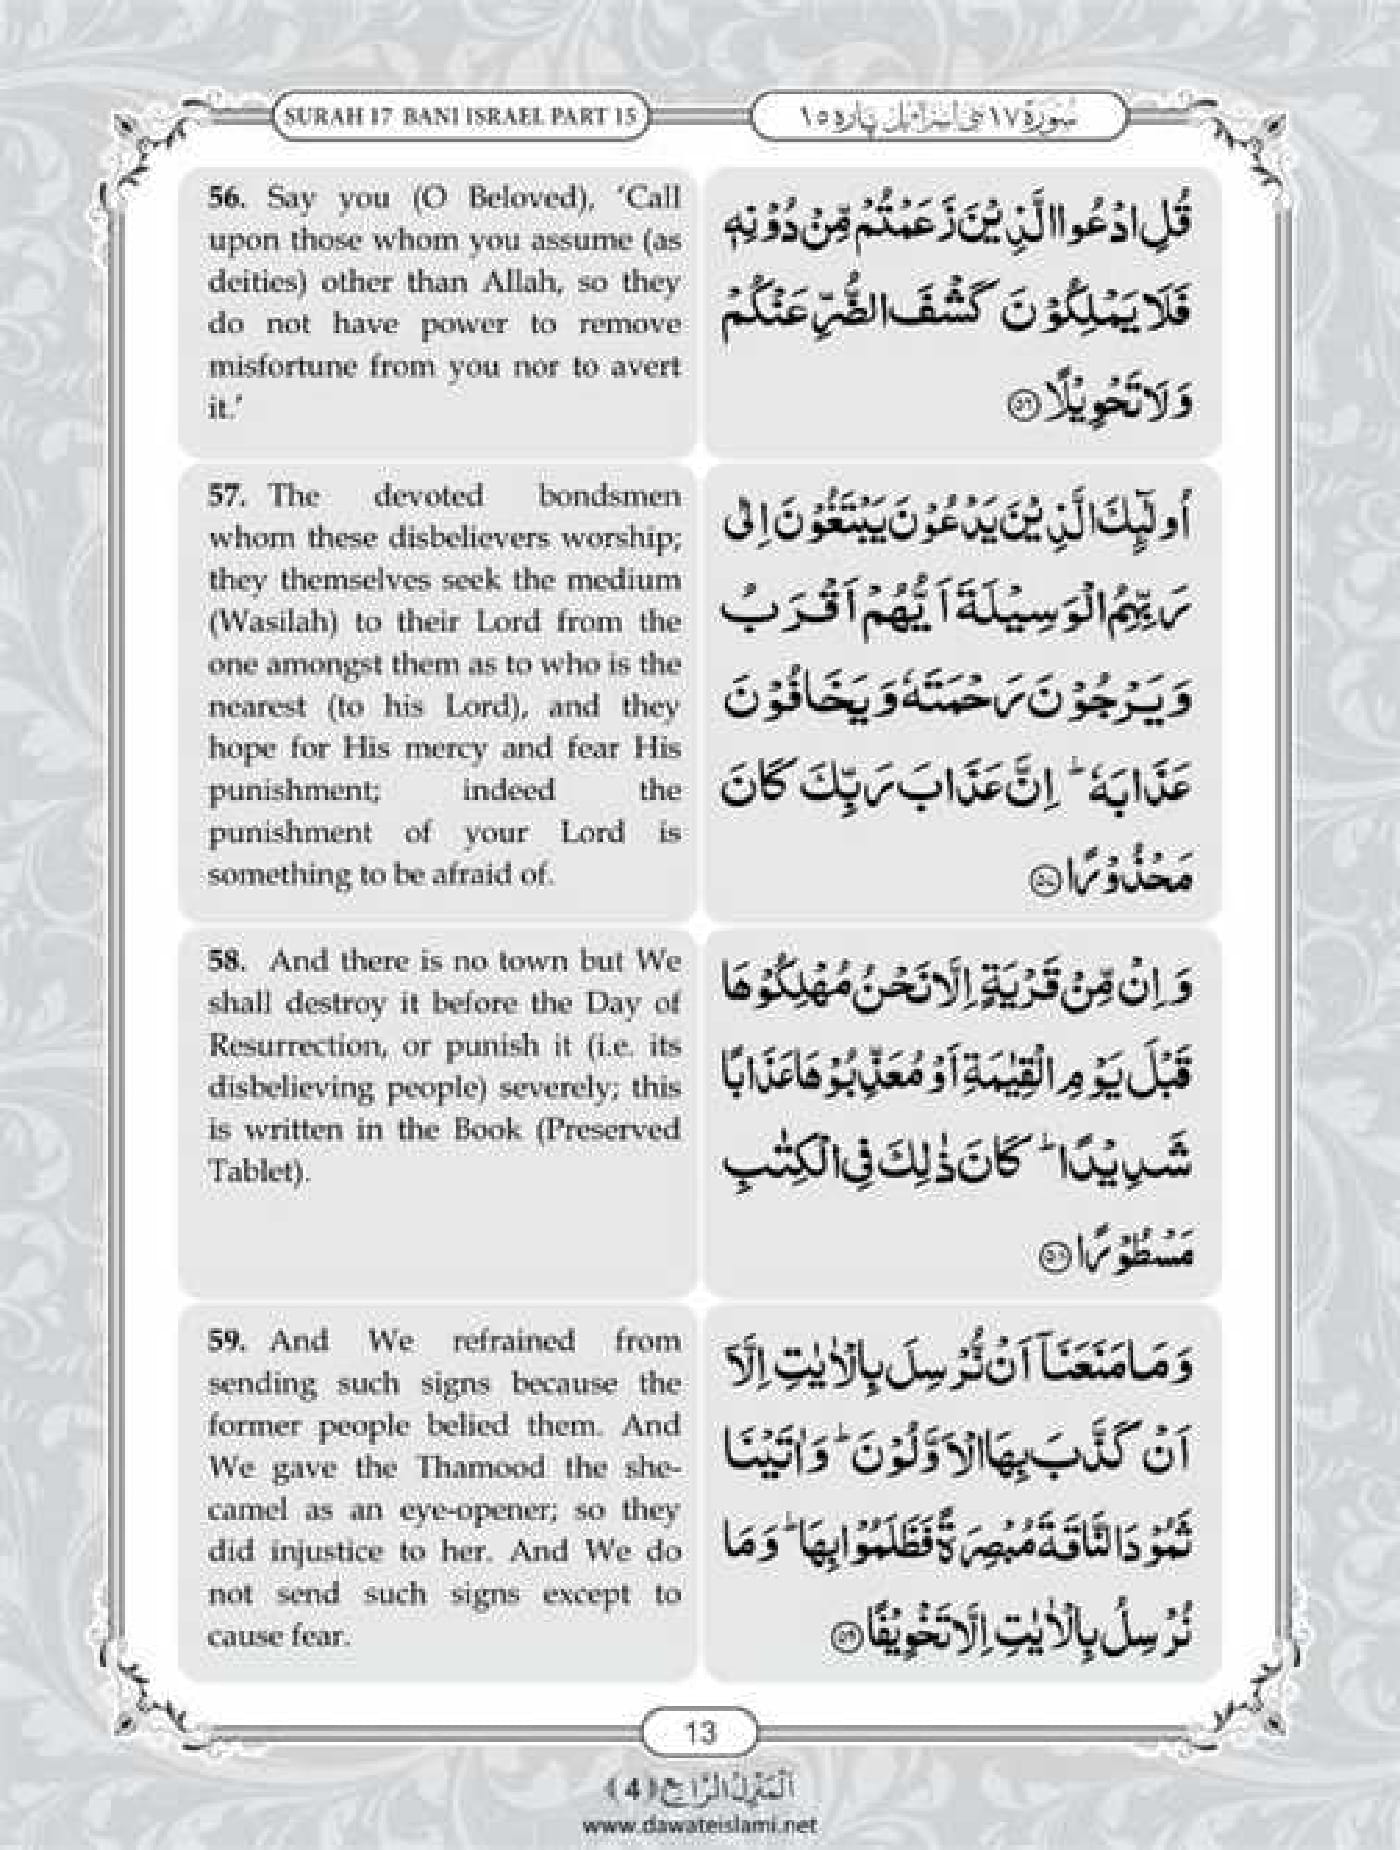 SURAH 17 BANI ISRAEL PART 15
سُوْرَة ١٧ بَنِیْ اِسْرَآءِیْل پارہ ١٥
56. Say you (O Beloved), ‘Call
upon those whom you assume (as
deities) other than Allah, so they
do not have power to remove
misfortune from you nor to avert
it.’
قُلِ ادْعُوا الَّذِیْنَ زَعَمْتُمْ مِّنْ دُوْنِهٖ
فَلَا یَمْلِكُوْنَ كَشْفَ الضُّرِّ عَنْكُمْ
وَ لَا تَحْوِیْلًا ﴿۵۶﴾
57. The devoted bondsmen
whom these disbelievers worship;
they themselves seek the medium
(Wasilah) to their Lord from the
one amongst them as to who is the
nearest (to his Lord), and they
hope for His mercy and fear His
punishment; indeed the
punishment of your Lord is
something to be afraid of.
اُولٰٓىِٕكَ الَّذِیْنَ یَدْعُوْنَ یَبْتَغُوْنَ اِلٰى
رَبِّهِمُ الْوَسِیْلَةَ اَیُّهُمْ اَقْرَبُ
وَ یَرْجُوْنَ رَحْمَتَهٗ وَ یَخَافُوْنَ
عَذَابَهٗ ؕ اِنَّ عَذَابَ رَبِّكَ كَانَ
مَحْذُوْرًا ﴿۵۷﴾
58. And there is no town but We
shall destroy it before the Day of
Resurrection, or punish it (i.e. its
disbelieving people) severely; this
is written in the Book (Preserved
Tablet).
وَ اِنْ مِّنْ قَرْیَةٍ اِلَّا نَحْنُ مُهْلِكُوْهَا
قَبْلَ یَوْمِ الْقِیٰمَةِ اَوْ مُعَذِّبُوْهَا عَذَابًا
شَدِیْدًا ؕ كَانَ ذٰلِكَ فِی الْكِتٰبِ
مَسْطُوْرًا ﴿۵۸﴾
59. And We refrained from
sending such signs because the
former people belied them. And
We gave the Thamood the she-
camel as an eye-opener; so they
did injustice to her. And We do
not send such signs except to
cause fear.
وَ مَا مَنَعَنَاۤ اَنْ نُّرْسِلَ بِالْاٰیٰتِ اِلَّاۤ
اَنْ كَذَّبَ بِهَا الْاَوَّلُوْنَ ؕ وَ اٰتَیْنَا
ثَمُوْدَ النَّاقَةَ مُبْصِرَةً فَظَلَمُوْا بِهَا ؕ وَ مَا
نُرْسِلُ بِالْاٰیٰتِ اِلَّا تَخْوِیْفًا ﴿۵۹﴾
13
اَلْمَنْزِلُ الرَّابِع (4)
www.dawateislami.net